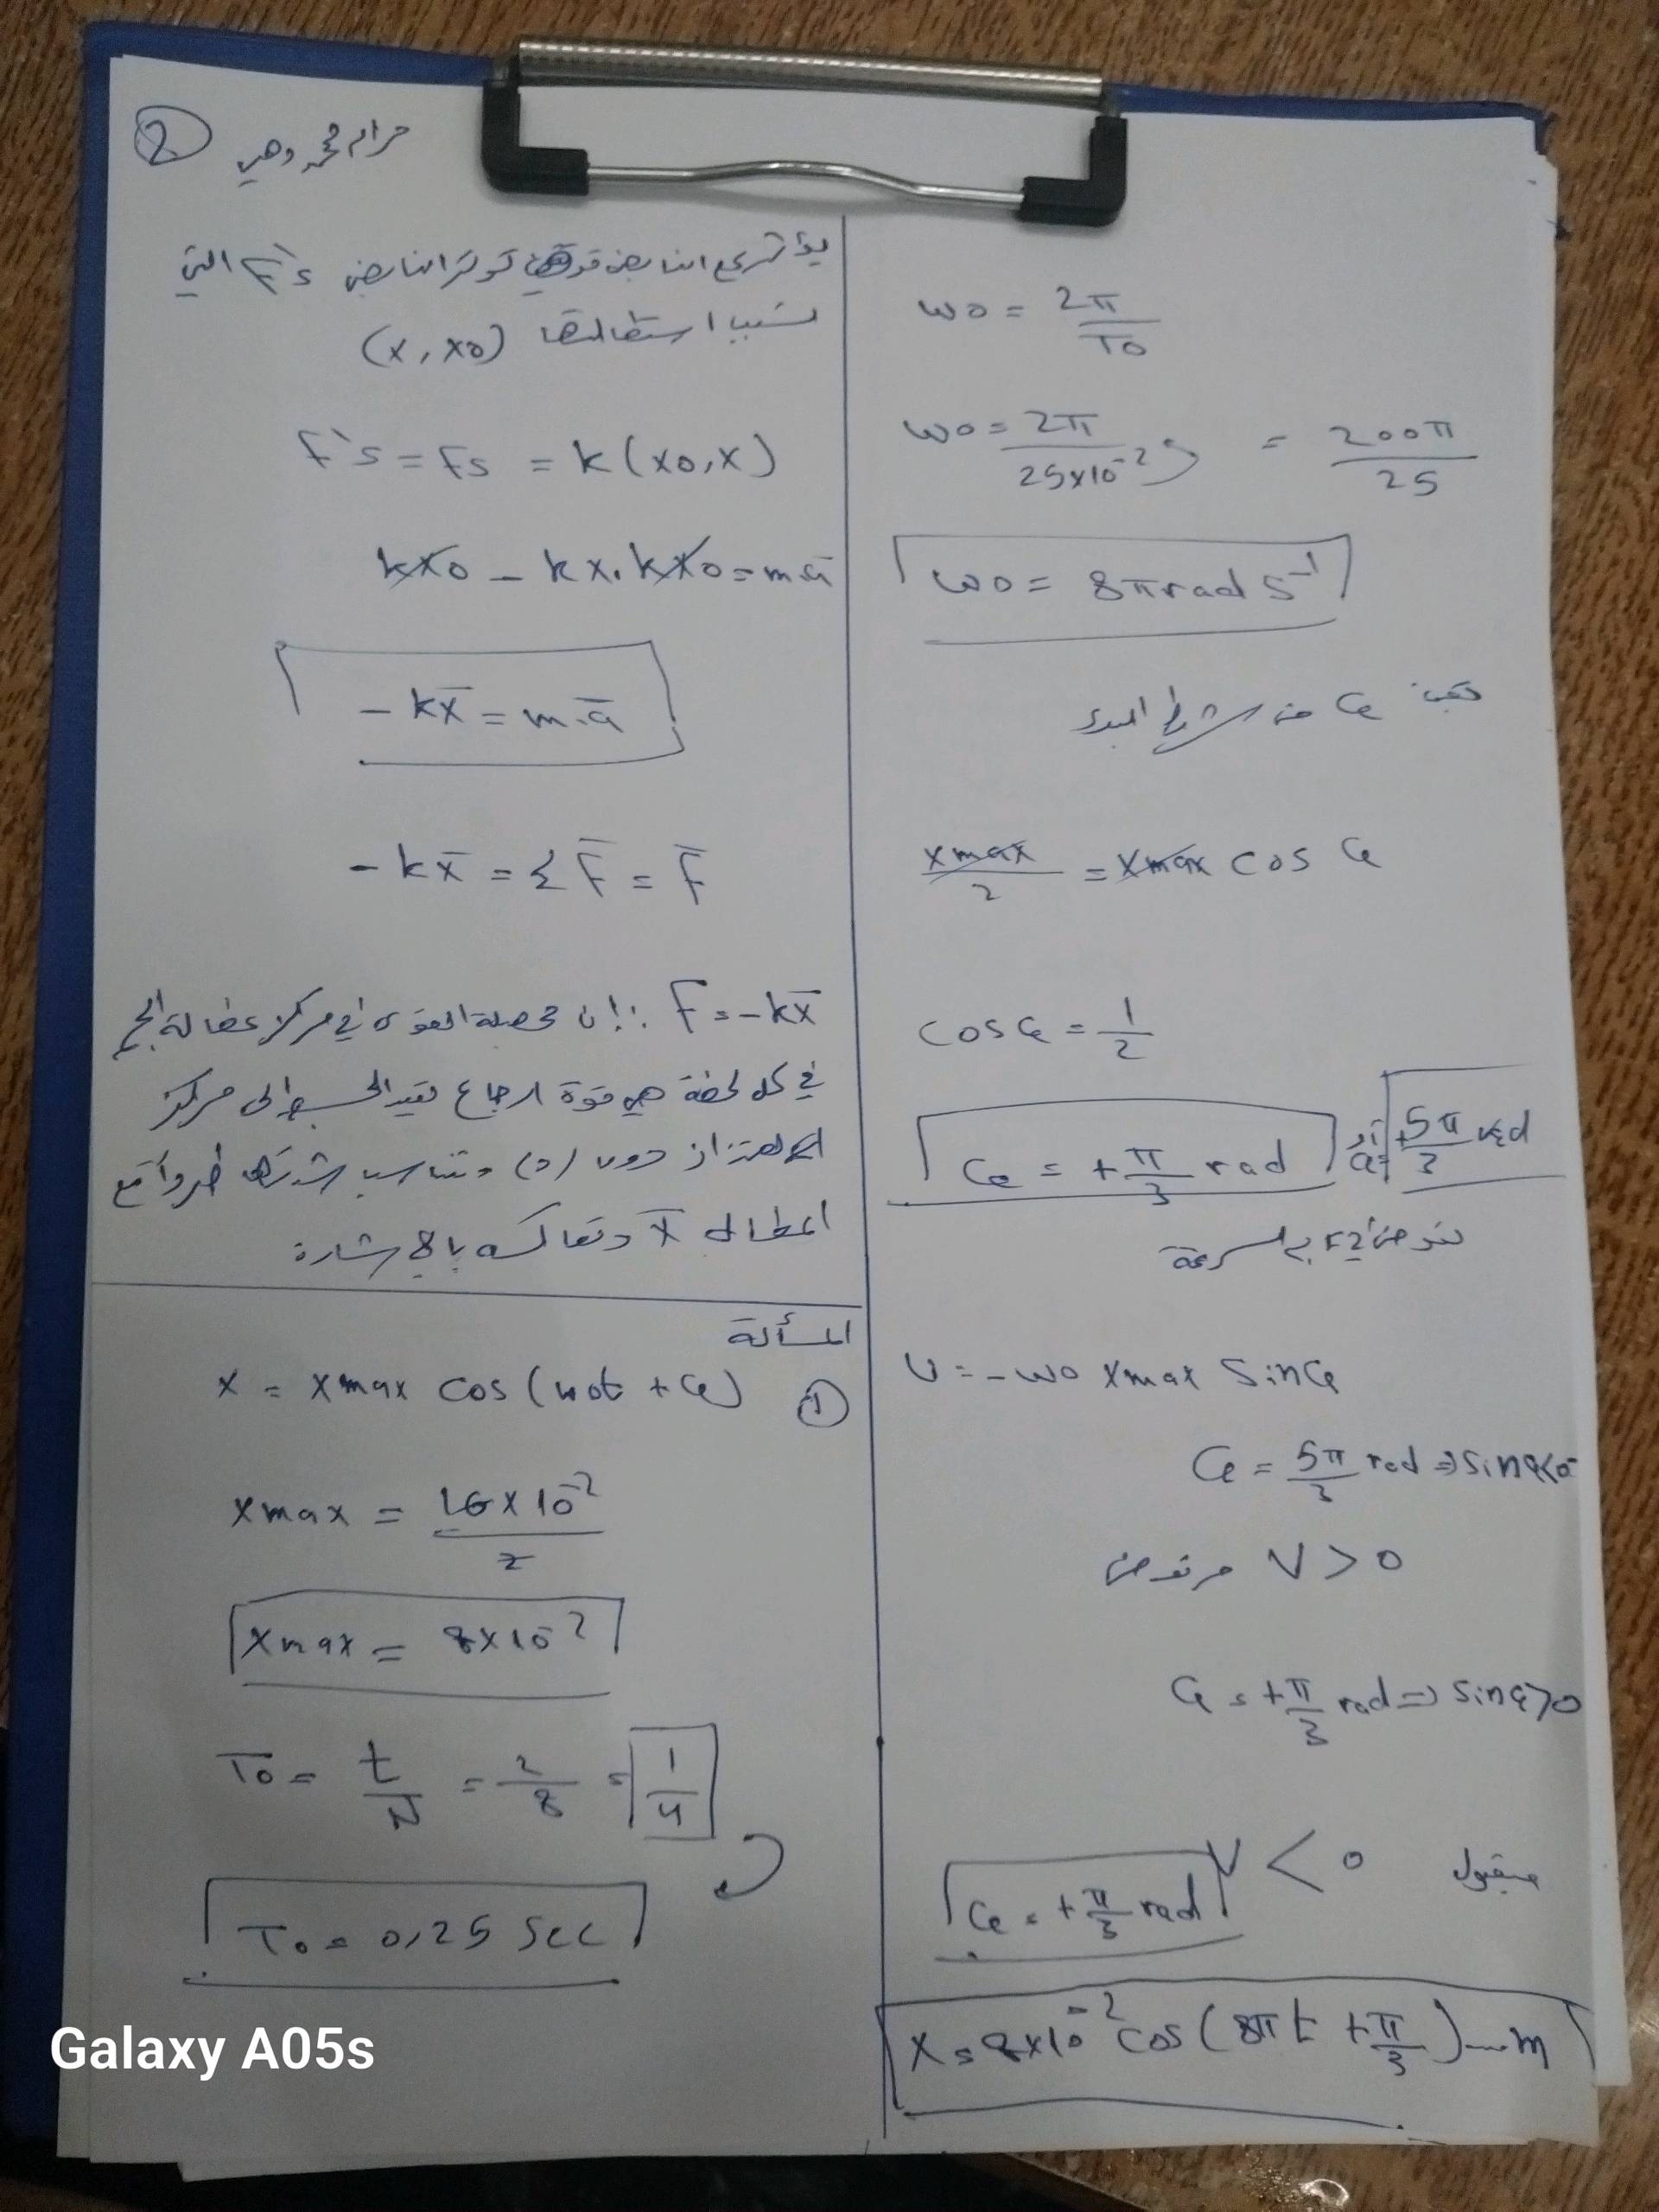 2
مرام محمد وهبي
يؤثر على النابض قوة هي توتر النابض F's التي
تسبب استطالتها (x, x0)
F's = Fs = k (x0, x)
kx0 - kx. kx0 = m.a̅
- kx̅ = m.a̅
- kx̅ = Σ F̅ = F̅
F = - kx̅ ∴ إن محصلة القوى في مركز عطالة الجسم
في كل لحظة هي قوة ارجاع تعيد الجسم إلى مركز
الاهتزاز دوما (o) وتتناسب شدتها طردا مع
المطال x̅ وتعاكسه بالإشارة
المسألة
① x = xmax cos (ω0t + φ)
xmax = 16 x 10⁻² / 2
xmax = 8x10⁻²
T0 = t/N = 2/8 = 1/4
T0 = 0,25 sec
ω0 = 2π / T0
ω0 = 2π / 25x10⁻² = 200π / 25
ω0 = 8π rad s⁻¹
نعين φ من شروط البدء
xmax / 2 = xmax cos φ
cos φ = 1/2
φ = + π/3 rad أو φ = + 5π/3 rad
نعوض بالسرعة
v = - ω0 xmax sin φ
φ = 5π/3 rad ⇒ sin φ < 0
v > 0 مرفوض
φ = + π/3 rad ⇒ sin φ > 0
v < 0 مقبول
φ = + π/3 rad
x = 8x10⁻² cos (8π t + π/3) m
Galaxy A05s